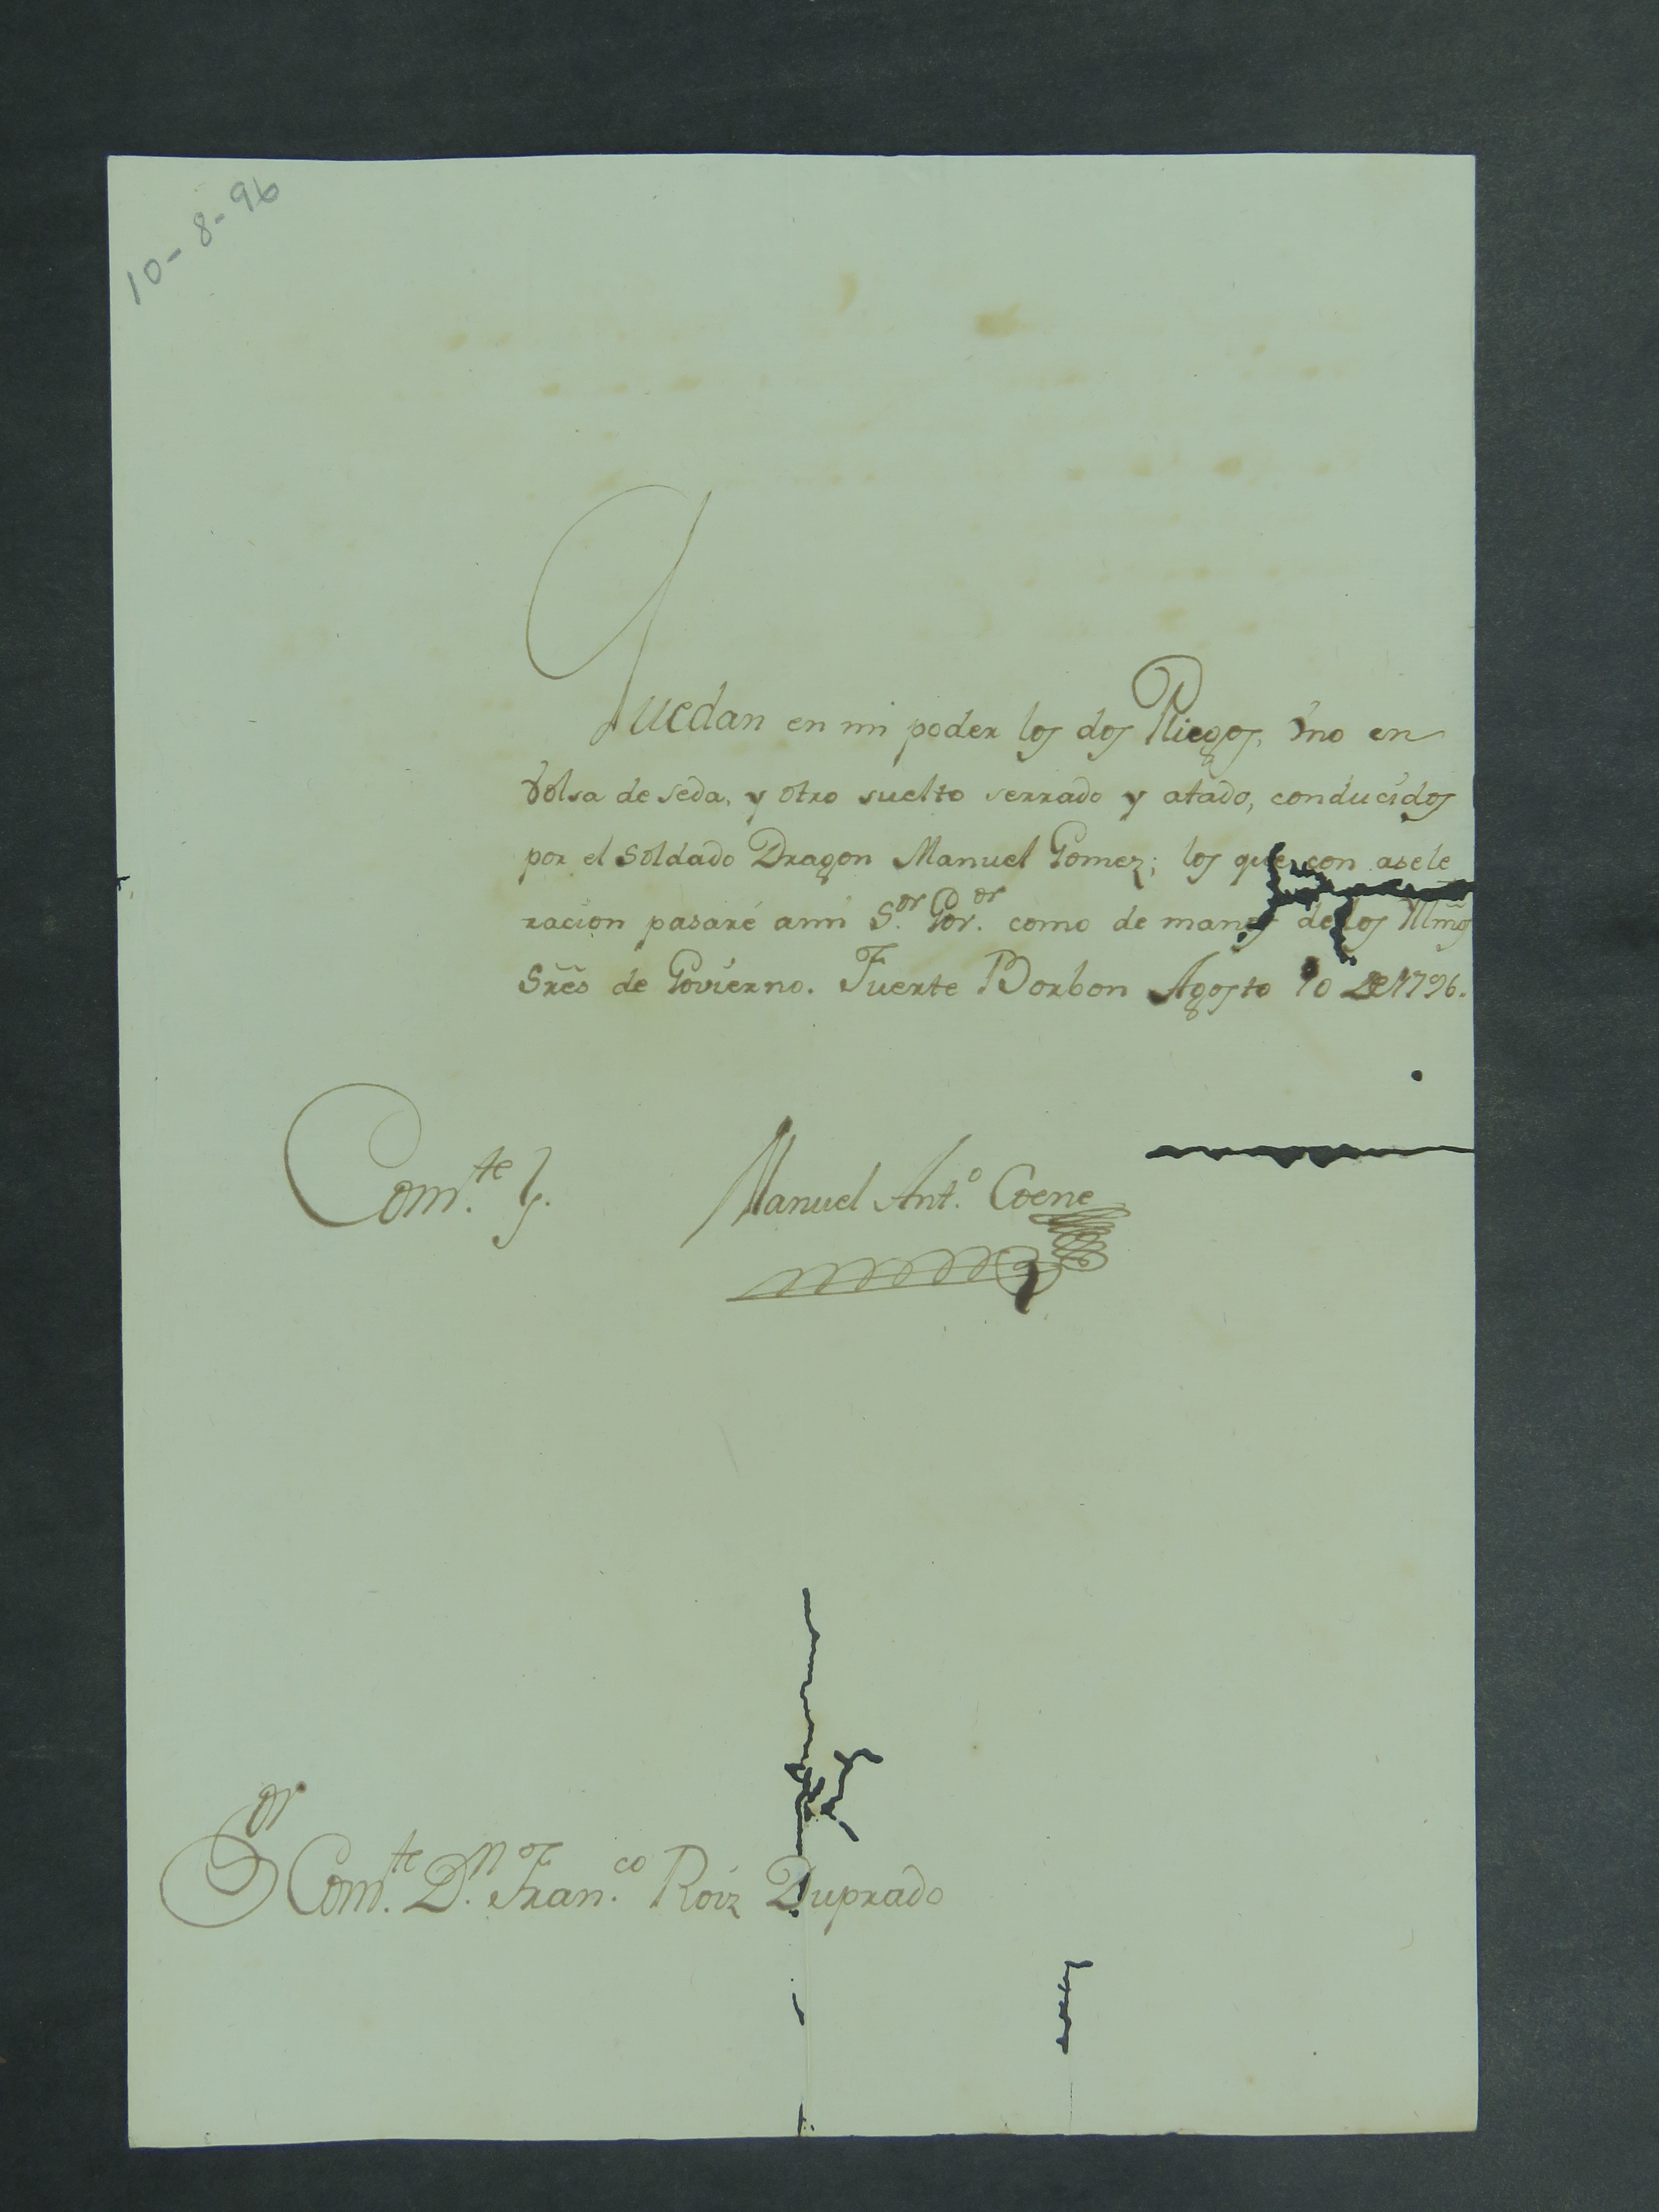 10-8-96
Quedan en mi poder los dos Pliegos, Vno en
Volsa de seda, y otro suelto serrado y atado, conducidos
por el Soldado Dragon Manuel Gomez; los que con asele
racion pasaré ami S.or Gov.or como de manos de los Illmõs
Srẽs de Govierno. Fuerte Borbon Agosto 10 de 1796.
Com.te Y.
Manuel Ant.o Coene
S.or Com.te D.n Fran.co Roiz Duprado